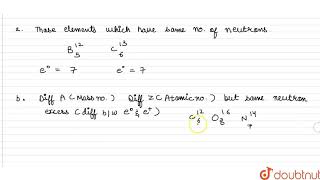 a. These elements which have same no. of neutrons.
B 12 5 C 13 6
e° = 7 e° = 7
b. Diff A (Mass no.) Diff Z (Atomic no.) but same neutron
excess (diff b/w e° & e+) C 12 6 O 16 8 N 14 7
doubtnut